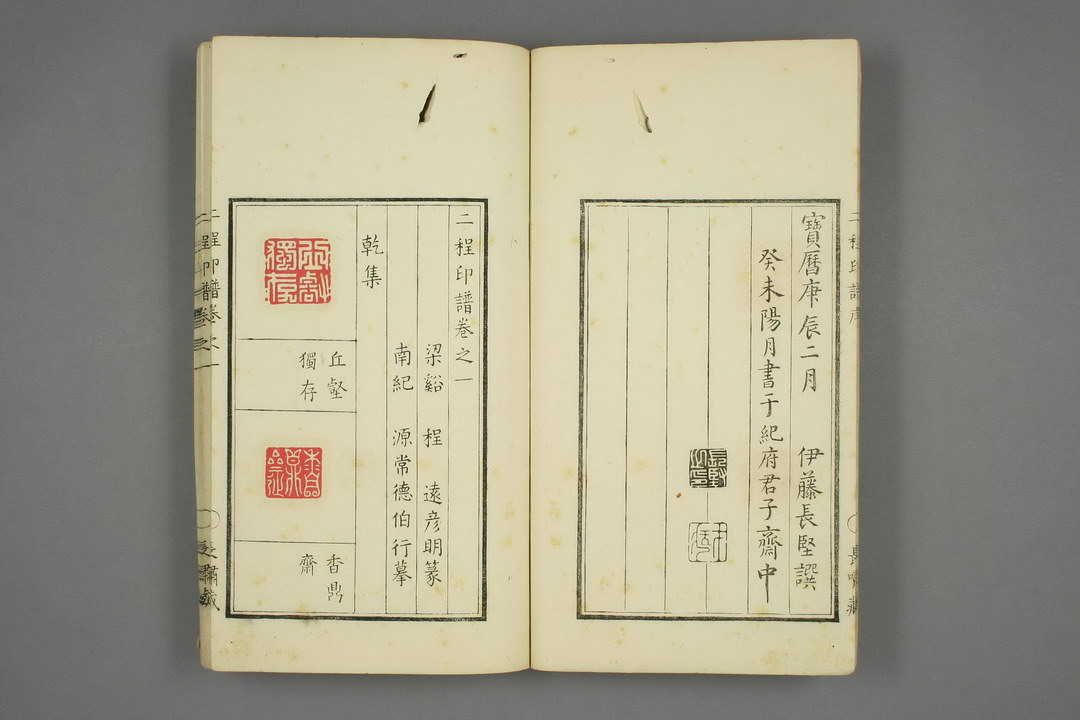 寶曆庚辰二月 伊藤長堅譔
癸未陽月書于紀府君子齋中
二程印譜卷之一
梁谿 程 遠彦明篆
南紀 源常德伯行摹
乾集
丘壑
獨存
香鼎
齋
二程印譜卷之一